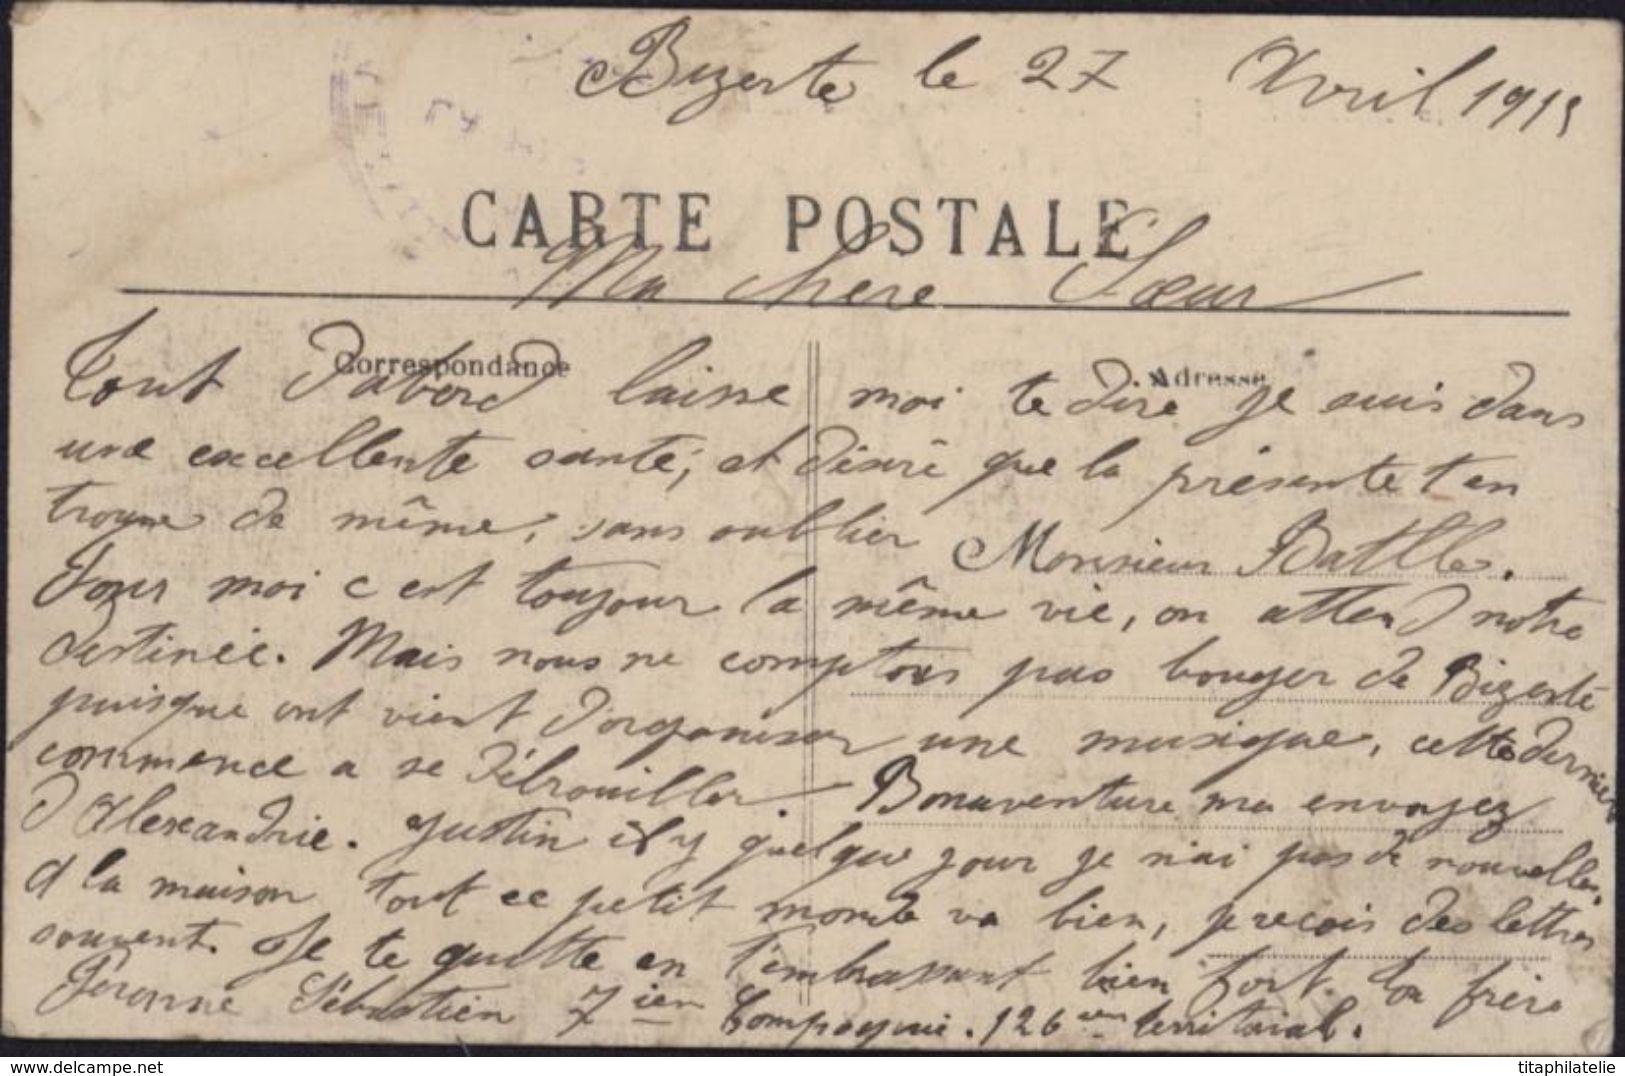 Bizerte le 27 Avril 1915
CARTE POSTALE
Ma chere Sœur
Correspondance
Adresse
Tout d'abord laisse moi te dire je suis dans
une excellente santé, et désire que la présente t'en
trouve de même, sans oublier Monsieur Batlle.
Pour moi c est toujour la même vie, on attend notre
destinée. Mais nous ne comptons pas bouger de Bizerte
puisque ont vient d'organiser une musique, cette dernier
commence a se débrouiller. Bonaventure ma envoyez
d'Alexandrie. Justin il y quelque jour je n'ai pas de nouvelles,
A la maison tout ce petit monde va bien, je recois des lettres
souvent. Je te quitte en t'embrassant bien fort. Ton frère
Sébastien 7 ien Compagnie. 126 em territorial.
titaphilatelie
www.delcampe.net